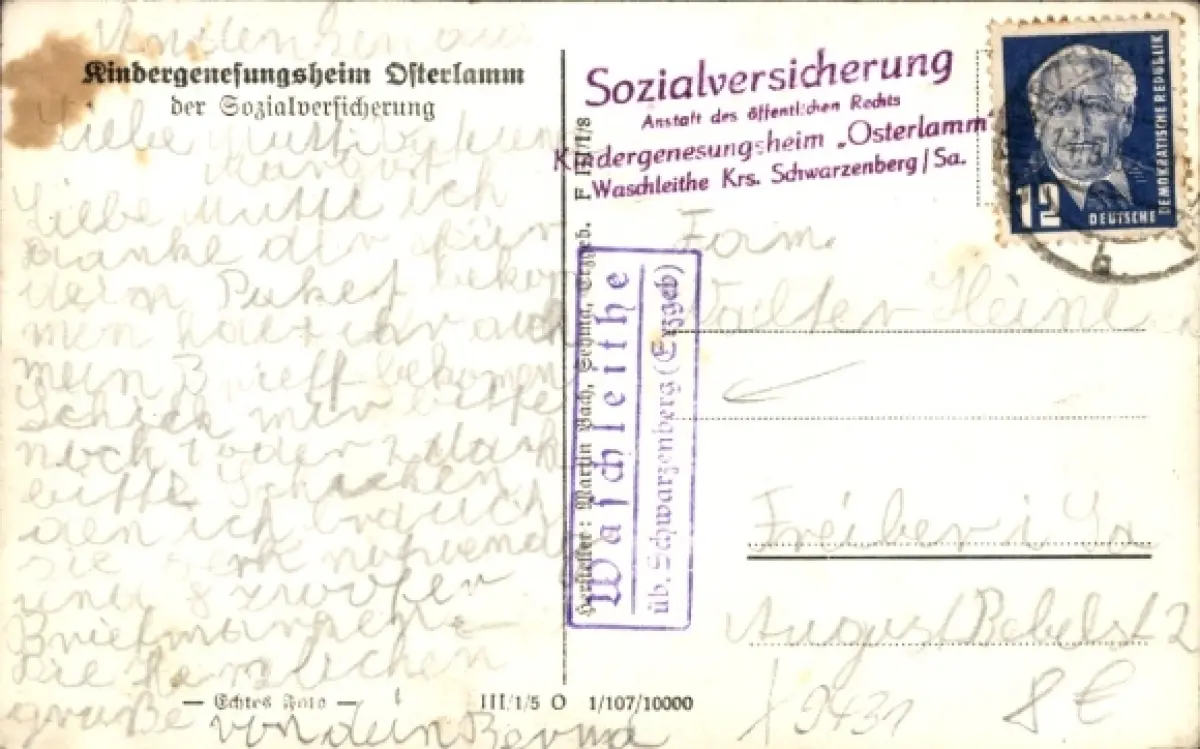 Andenken aus
Kindergenesungsheim Osterlamm
der Sozialversicherung
Liebe Mutti
Liebe Mutti ich
danke dir für
dein Paket bekom
men habt ihr auch
mein Brieff bekomen
Schick mir bitte
noch 1 oder 2 Mark
bitte Schicken
den ich brauch
sie
und 8 zwölfer
Briefmarken
die herzlichen
grüße von dein
— Echtes Foto —
III/1/5 O 1/107/10000
Hersteller: Martin Bach, Sehma, Erzgeb. F III/1/8
Sozialversicherung
Anstalt des öffentlichen Rechts
Kindergenesungsheim „Osterlamm“
Waschleithe Krs. Schwarzenberg/Sa.
12
DEUTSCHE
DEMOKRATISCHE REPUBLIK
Waschleithe
üb. Schwarzenberg (Erzgeb)
Fam.
Walter Heine
Freiber i Sa
August Bebelst 2
9431
8 €